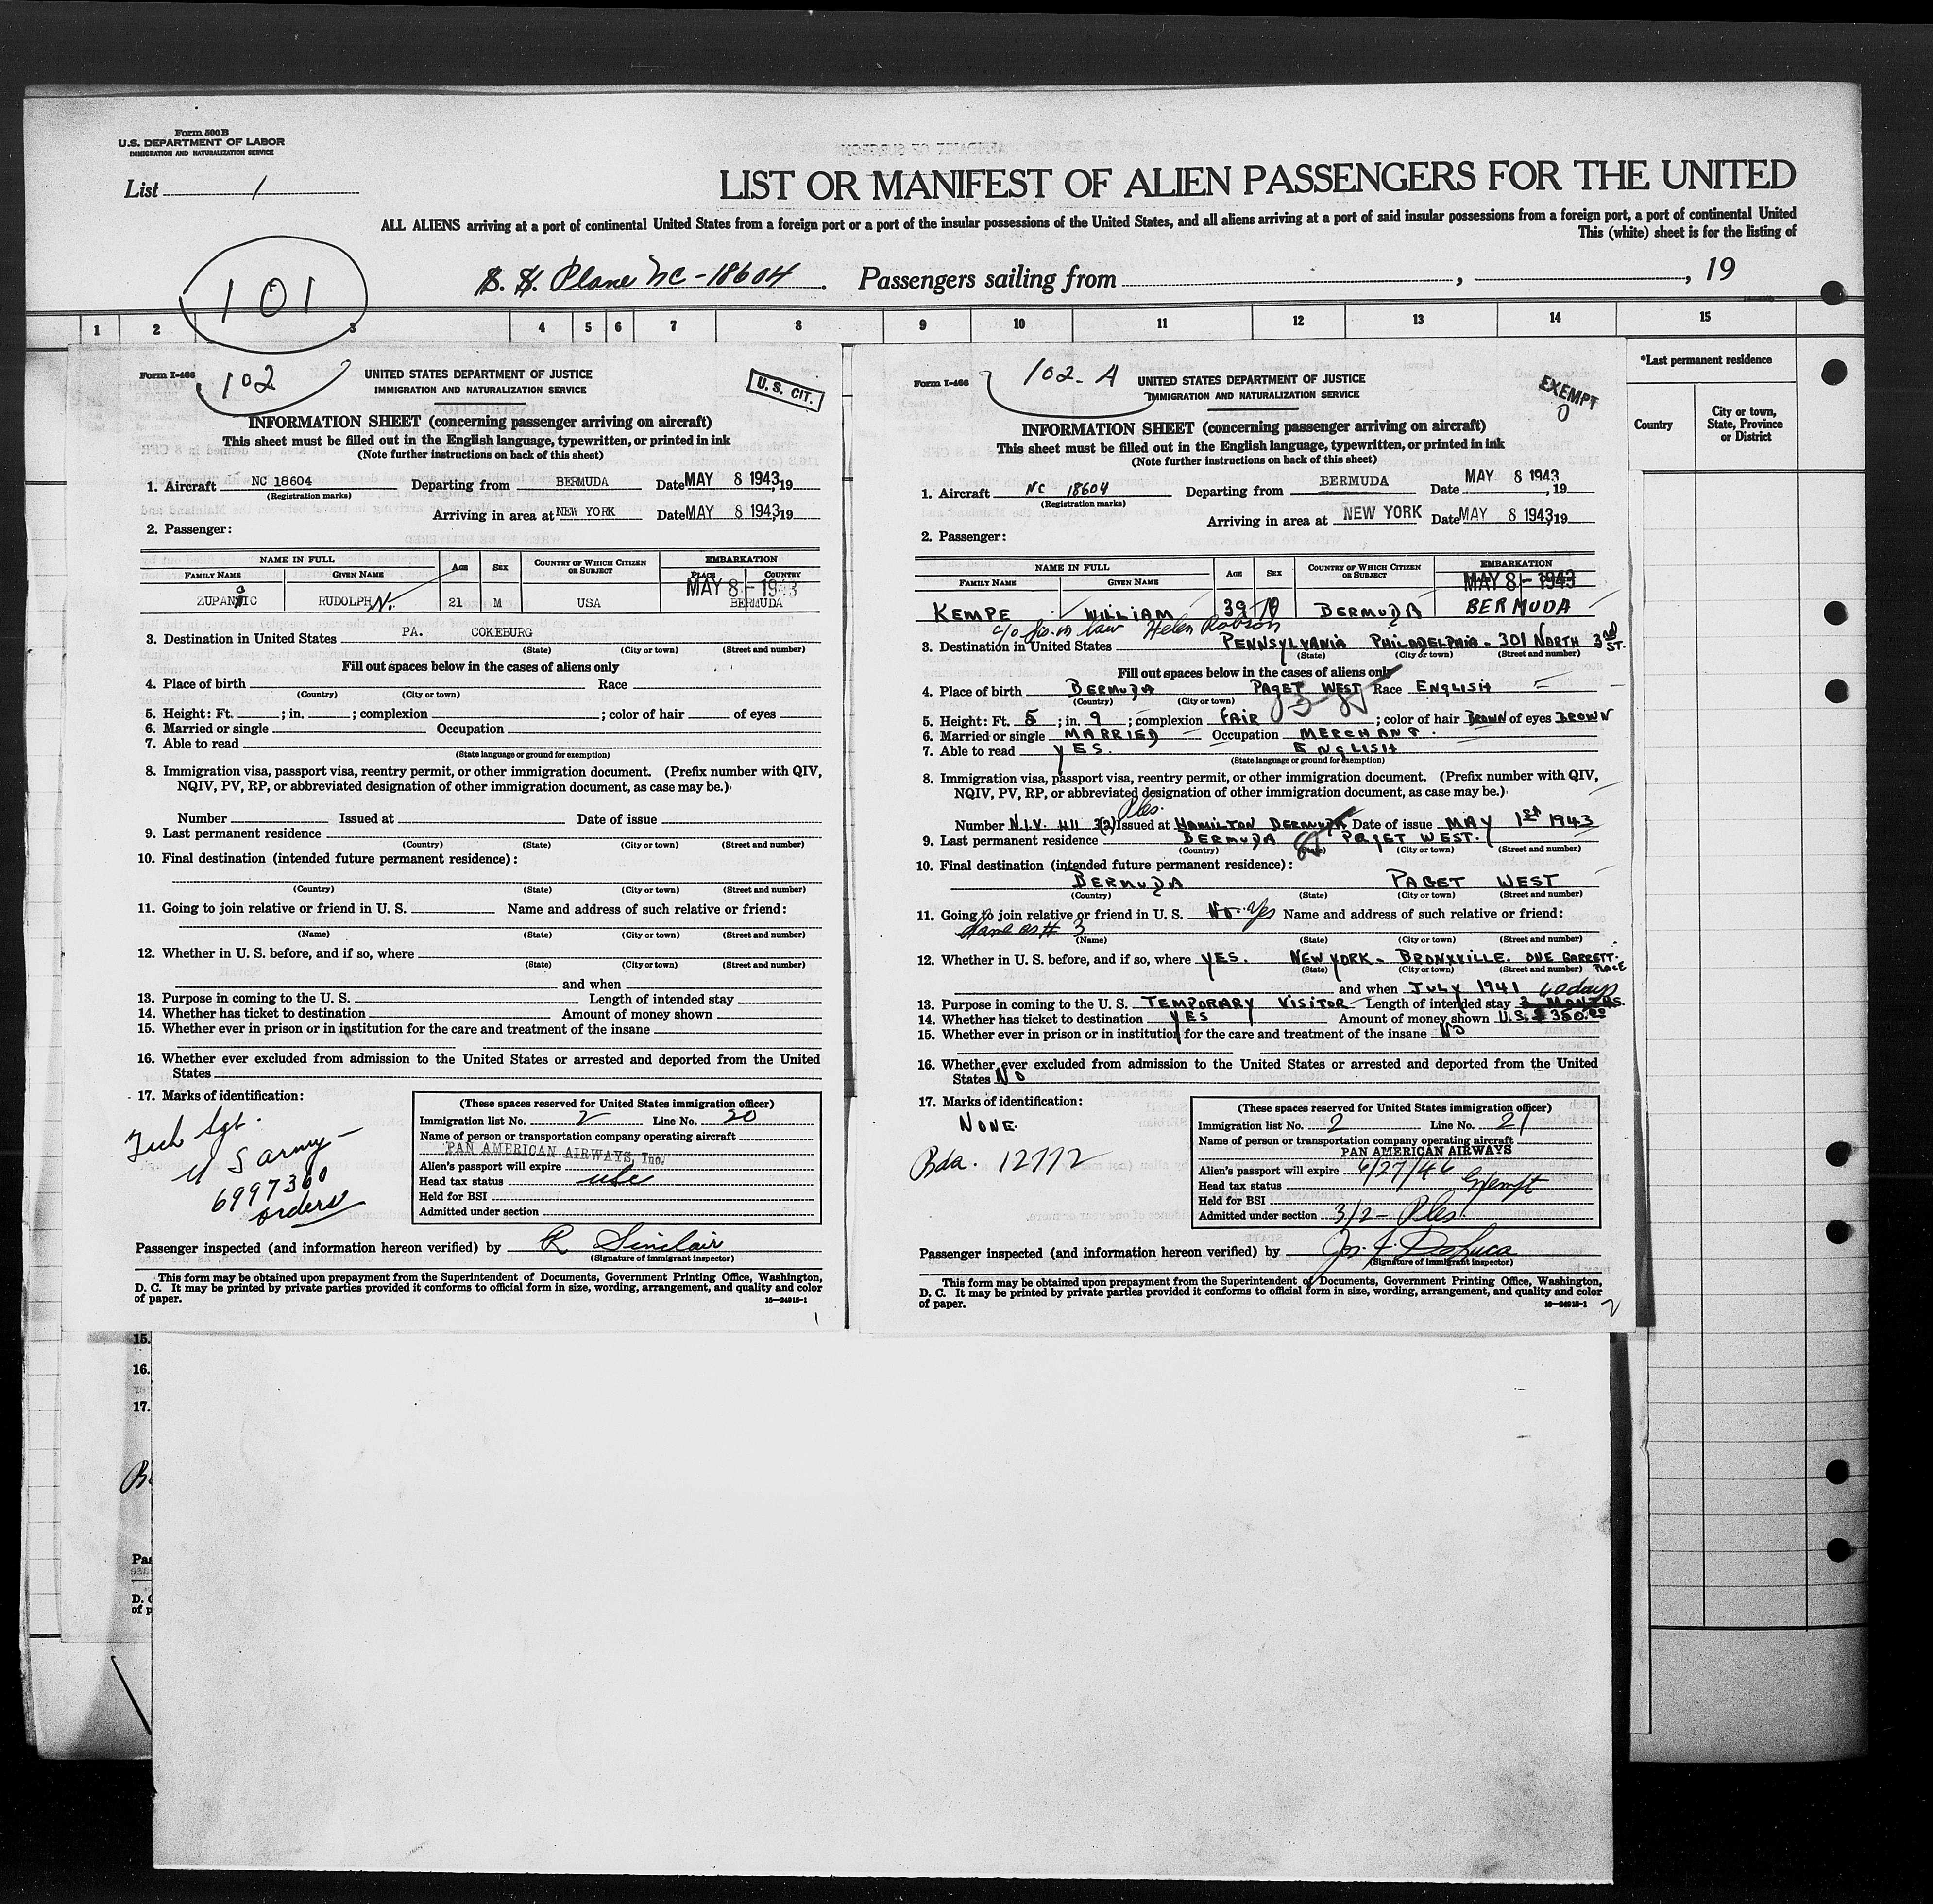 Form 500B
U.S. DEPARTMENT OF LABOR
IMMIGRATION AND NATURALIZATION SERVICE
List 1
LIST OR MANIFEST OF ALIEN PASSENGERS FOR THE UNITED
ALL ALIENS arriving at a port of continental United States from a foreign port or a port of the insular possessions of the United States, and all aliens arriving at a port of said insular possessions from a foreign port, a port of continental United
This (white) sheet is for the listing of
101
S. S. Plane NC-18604. Passengers sailing from , , 19
1 2 3 4 5 6 7 8 9 10 11 12 13 14 15
*Last permanent residence
Country
City or town,
State, Province
or District
Form I-466
102
UNITED STATES DEPARTMENT OF JUSTICE
IMMIGRATION AND NATURALIZATION SERVICE
U. S. CIT.
INFORMATION SHEET (concerning passenger arriving on aircraft)
This sheet must be filled out in the English language, typewritten, or printed in ink
(Note further instructions on back of this sheet)
1. Aircraft NC 18604 Departing from BERMUDA Date MAY 8 1943, 19
(Registration marks)
Arriving in area at NEW YORK Date MAY 8 1943, 19
2. Passenger:
NAME IN FULL AGE SEX COUNTRY OF WHICH CITIZEN OR SUBJECT EMBARKATION
FAMILY NAME GIVEN NAME PLACE COUNTRY
MAY 8 - 1943
RUDOLPH N. 21 M USA BERMUDA
3. Destination in United States PA. COKEBURG
(State) (City or town) (Street and number)
Fill out spaces below in the cases of aliens only
4. Place of birth Race
(Country) (City or town)
5. Height: Ft. ; in. ; complexion ; color of hair of eyes
6. Married or single Occupation
7. Able to read
(State language or ground for exemption)
8. Immigration visa, passport visa, reentry permit, or other immigration document. (Prefix number with QIV,
NQIV, PV, RP, or abbreviated designation of other immigration document, as case may be.)
Number Issued at Date of issue
9. Last permanent residence
(Country) (State) (City or town) (Street and number)
10. Final destination (intended future permanent residence):
(Country) (State) (City or town) (Street and number)
11. Going to join relative or friend in U. S. Name and address of such relative or friend:
(Name) (State) (City or town) (Street and number)
12. Whether in U. S. before, and if so, where
(State) (City or town) (Street and number)
and when
13. Purpose in coming to the U. S. Length of intended stay
14. Whether has ticket to destination Amount of money shown
15. Whether ever in prison or in institution for the care and treatment of the insane
16. Whether ever excluded from admission to the United States or arrested and deported from the United
States
17. Marks of identification:
Tech Sgt.
U S army -
6997360
orders
(These spaces reserved for United States immigration officer)
Immigration list No. 2 Line No. 20
Name of person or transportation company operating aircraft
PAN AMERICAN AIRWAYS, Inc.
Alien's passport will expire
Head tax status usc
Held for BSI
Admitted under section
Passenger inspected (and information hereon verified) by R Sinclair
(Signature of immigrant inspector)
This form may be obtained upon prepayment from the Superintendent of Documents, Government Printing Office, Washington,
D. C. It may be printed by private parties provided it conforms to official form in size, wording, arrangement, and quality and color
of paper.
16-24915-1
1
Form I-466
102-A
UNITED STATES DEPARTMENT OF JUSTICE
IMMIGRATION AND NATURALIZATION SERVICE
EXEMPT
INFORMATION SHEET (concerning passenger arriving on aircraft)
This sheet must be filled out in the English language, typewritten, or printed in ink
(Note further instructions on back of this sheet)
1. Aircraft NC 18604 Departing from BERMUDA Date MAY 8 1943, 19
(Registration marks)
Arriving in area at NEW YORK Date MAY 8 1943, 19
2. Passenger:
NAME IN FULL AGE SEX COUNTRY OF WHICH CITIZEN OR SUBJECT EMBARKATION
FAMILY NAME GIVEN NAME
MAY 8 - 1943
KEMPE WILLIAM 39 M BERMUDA BERMUDA
c/o sis. in law Helen Robson
3. Destination in United States PENNSYLVANIA PHILADELPHIA - 301 NORTH 3rd ST.
(State) (City or town) (Street and number)
Fill out spaces below in the cases of aliens only
4. Place of birth BERMUDA PAGET WEST Race ENGLISH
(Country) (City or town)
5. Height: Ft. 5 ; in. 9 ; complexion FAIR ; color of hair BROWN of eyes BROWN
6. Married or single MARRIED Occupation MERCHANT.
7. Able to read YES. ENGLISH
(State language or ground for exemption)
8. Immigration visa, passport visa, reentry permit, or other immigration document. (Prefix number with QIV,
NQIV, PV, RP, or abbreviated designation of other immigration document, as case may be.)
Number N.I.V. 411 3(2) Issued at HAMILTON BERMUDA Date of issue MAY 1st 1943
9. Last permanent residence BERMUDA PAGET WEST.
(Country) (State) (City or town) (Street and number)
10. Final destination (intended future permanent residence):
BERMUDA PAGET WEST
(Country) (State) (City or town) (Street and number)
11. Going to join relative or friend in U. S. No. Yes Name and address of such relative or friend:
Same as # 3
(Name) (State) (City or town) (Street and number)
12. Whether in U. S. before, and if so, where YES. NEW YORK - BRONXVILLE. ONE GARRETT. PLACE
(State) (City or town) (Street and number)
and when JULY 1941
13. Purpose in coming to the U. S. TEMPORARY VISITOR Length of intended stay 3 MONTHS. 60 days
14. Whether has ticket to destination YES Amount of money shown U.S. $350.00
15. Whether ever in prison or in institution for the care and treatment of the insane NO
16. Whether ever excluded from admission to the United States or arrested and deported from the United
States NO
17. Marks of identification:
NONE.
Bda. 12772
(These spaces reserved for United States immigration officer)
Immigration list No. 2 Line No. 21
Name of person or transportation company operating aircraft
PAN AMERICAN AIRWAYS
Alien's passport will expire 6/27/46
Head tax status Exempt
Held for BSI
Admitted under section 3/2-
Passenger inspected (and information hereon verified) by Jos. J. DeLuca
(Signature of immigrant inspector)
This form may be obtained upon prepayment from the Superintendent of Documents, Government Printing Office, Washington,
D. C. It may be printed by private parties provided it conforms to official form in size, wording, arrangement, and quality and color
of paper.
16-24915-1
2
15.
16.
17.
Pas
D. C
of p